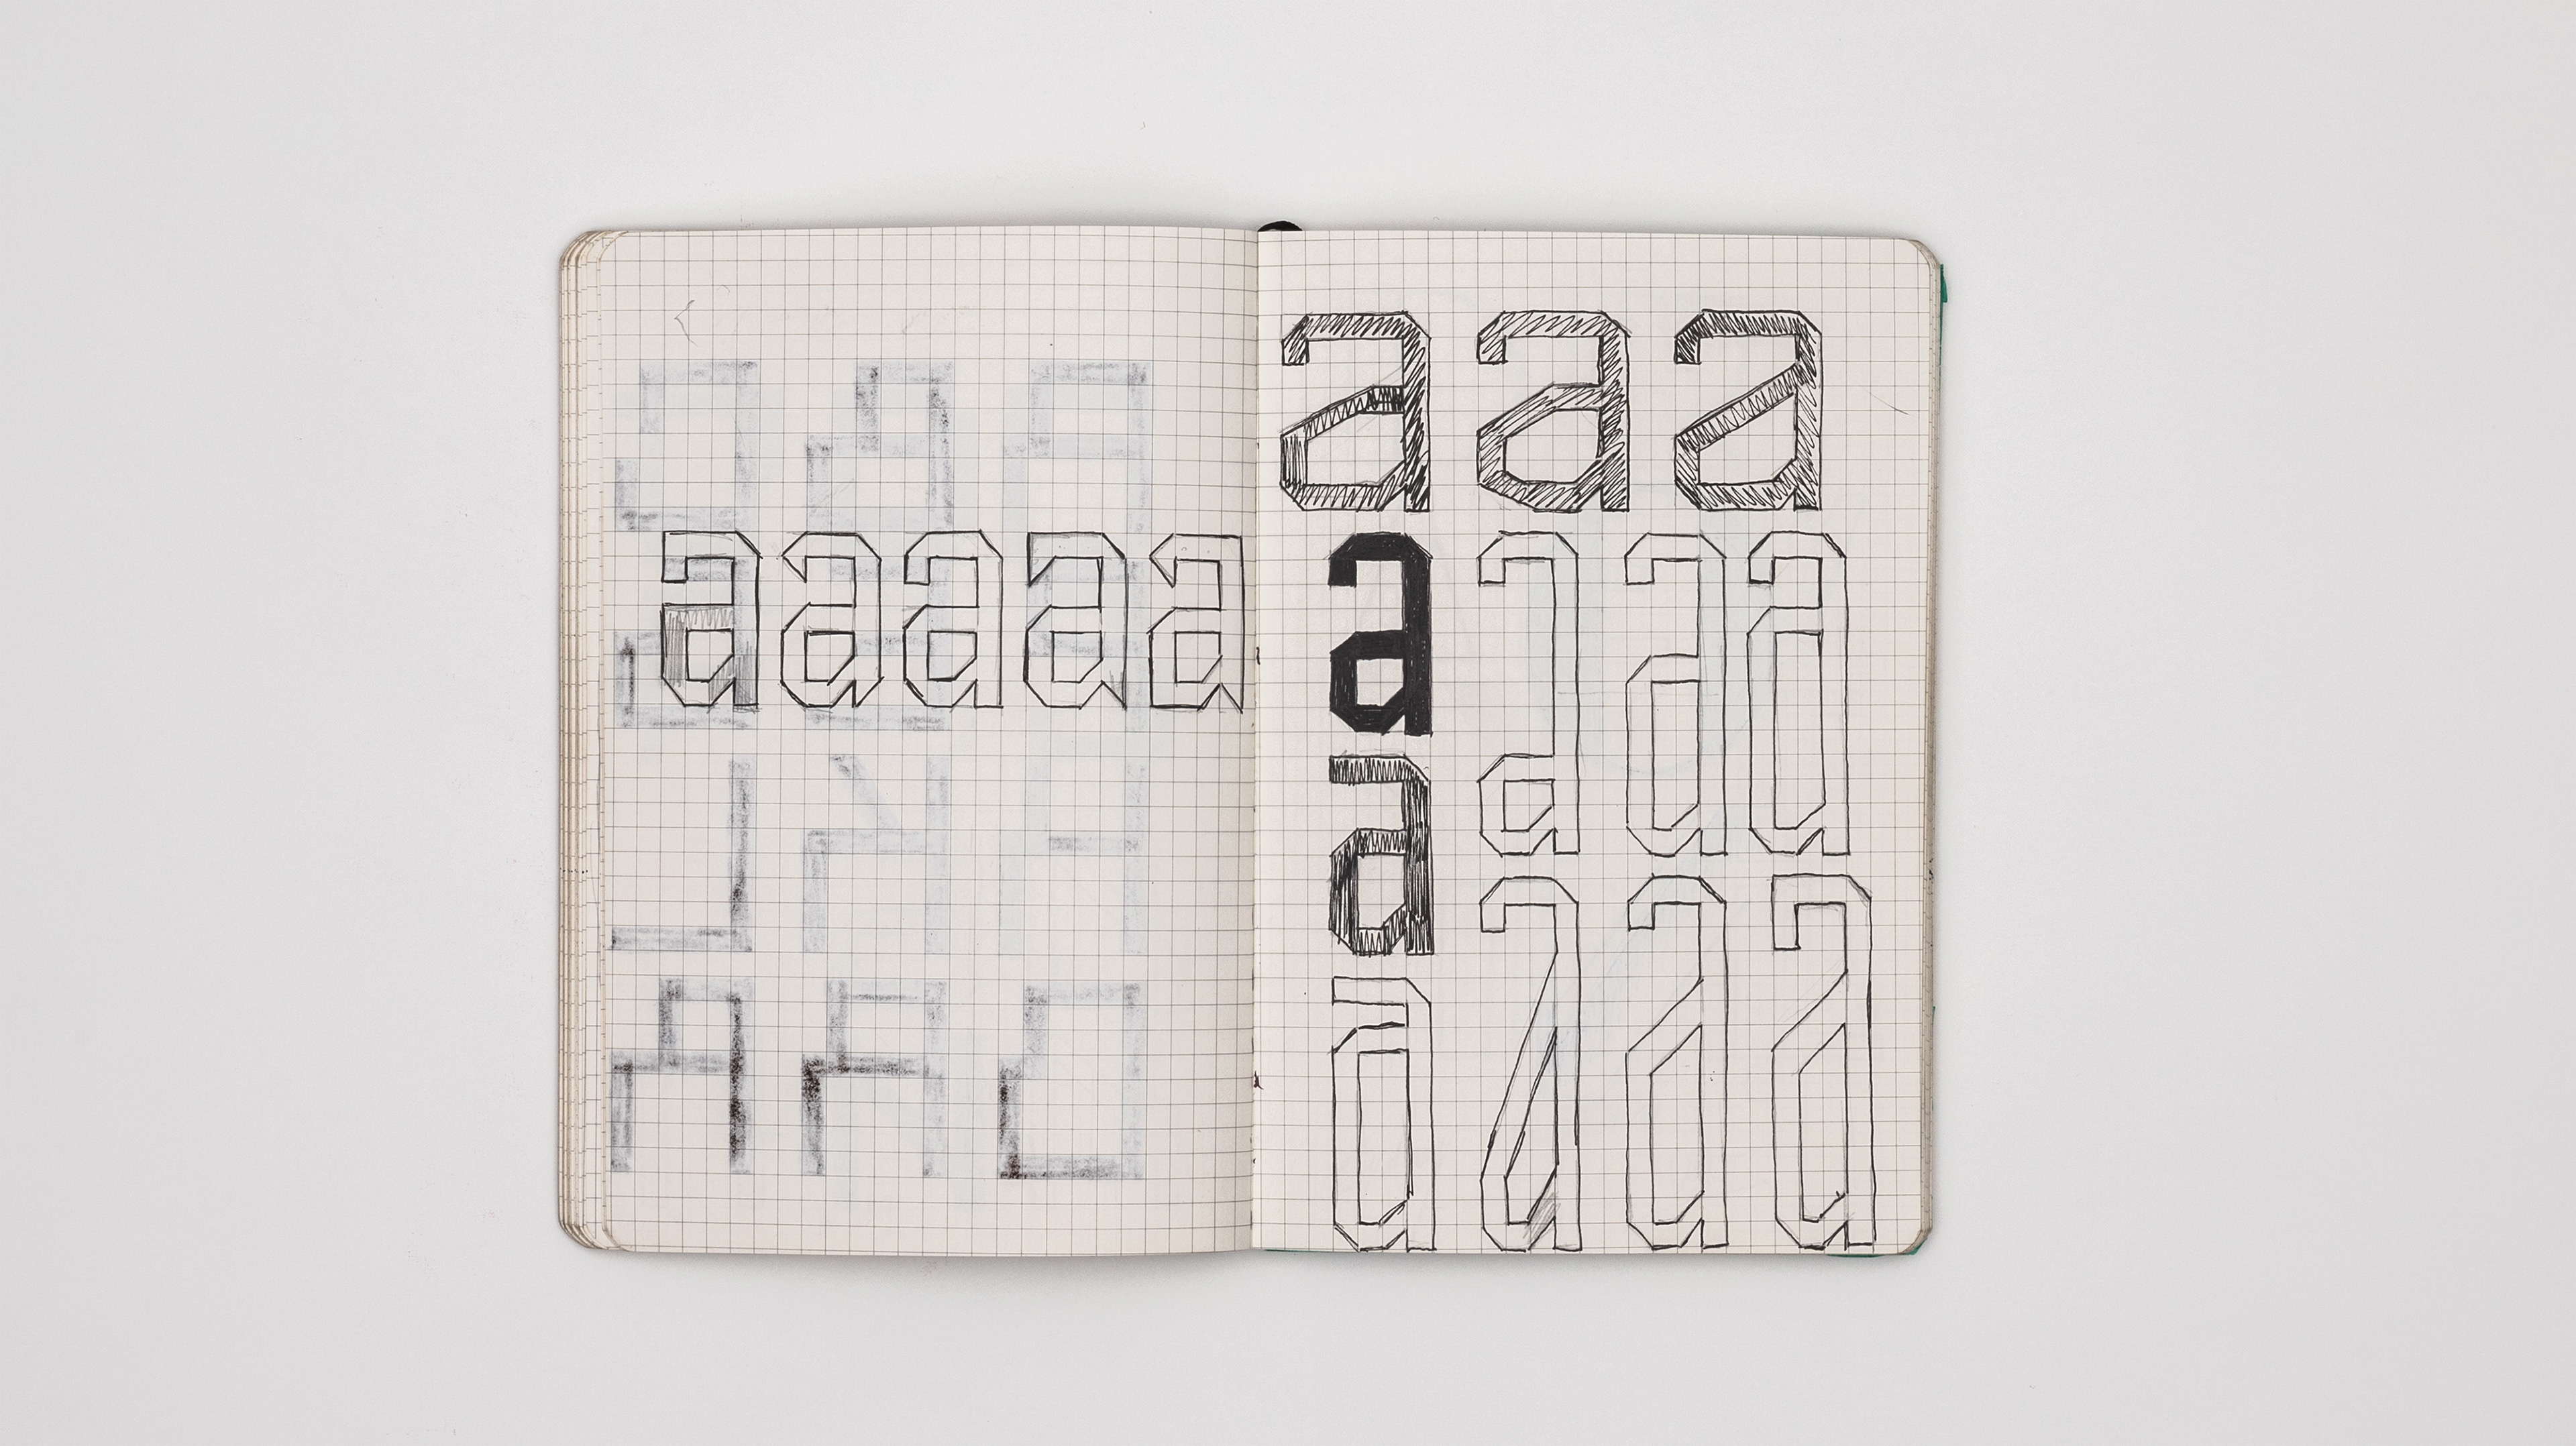 aaaaa
aaa
aaaa
a
aaaa